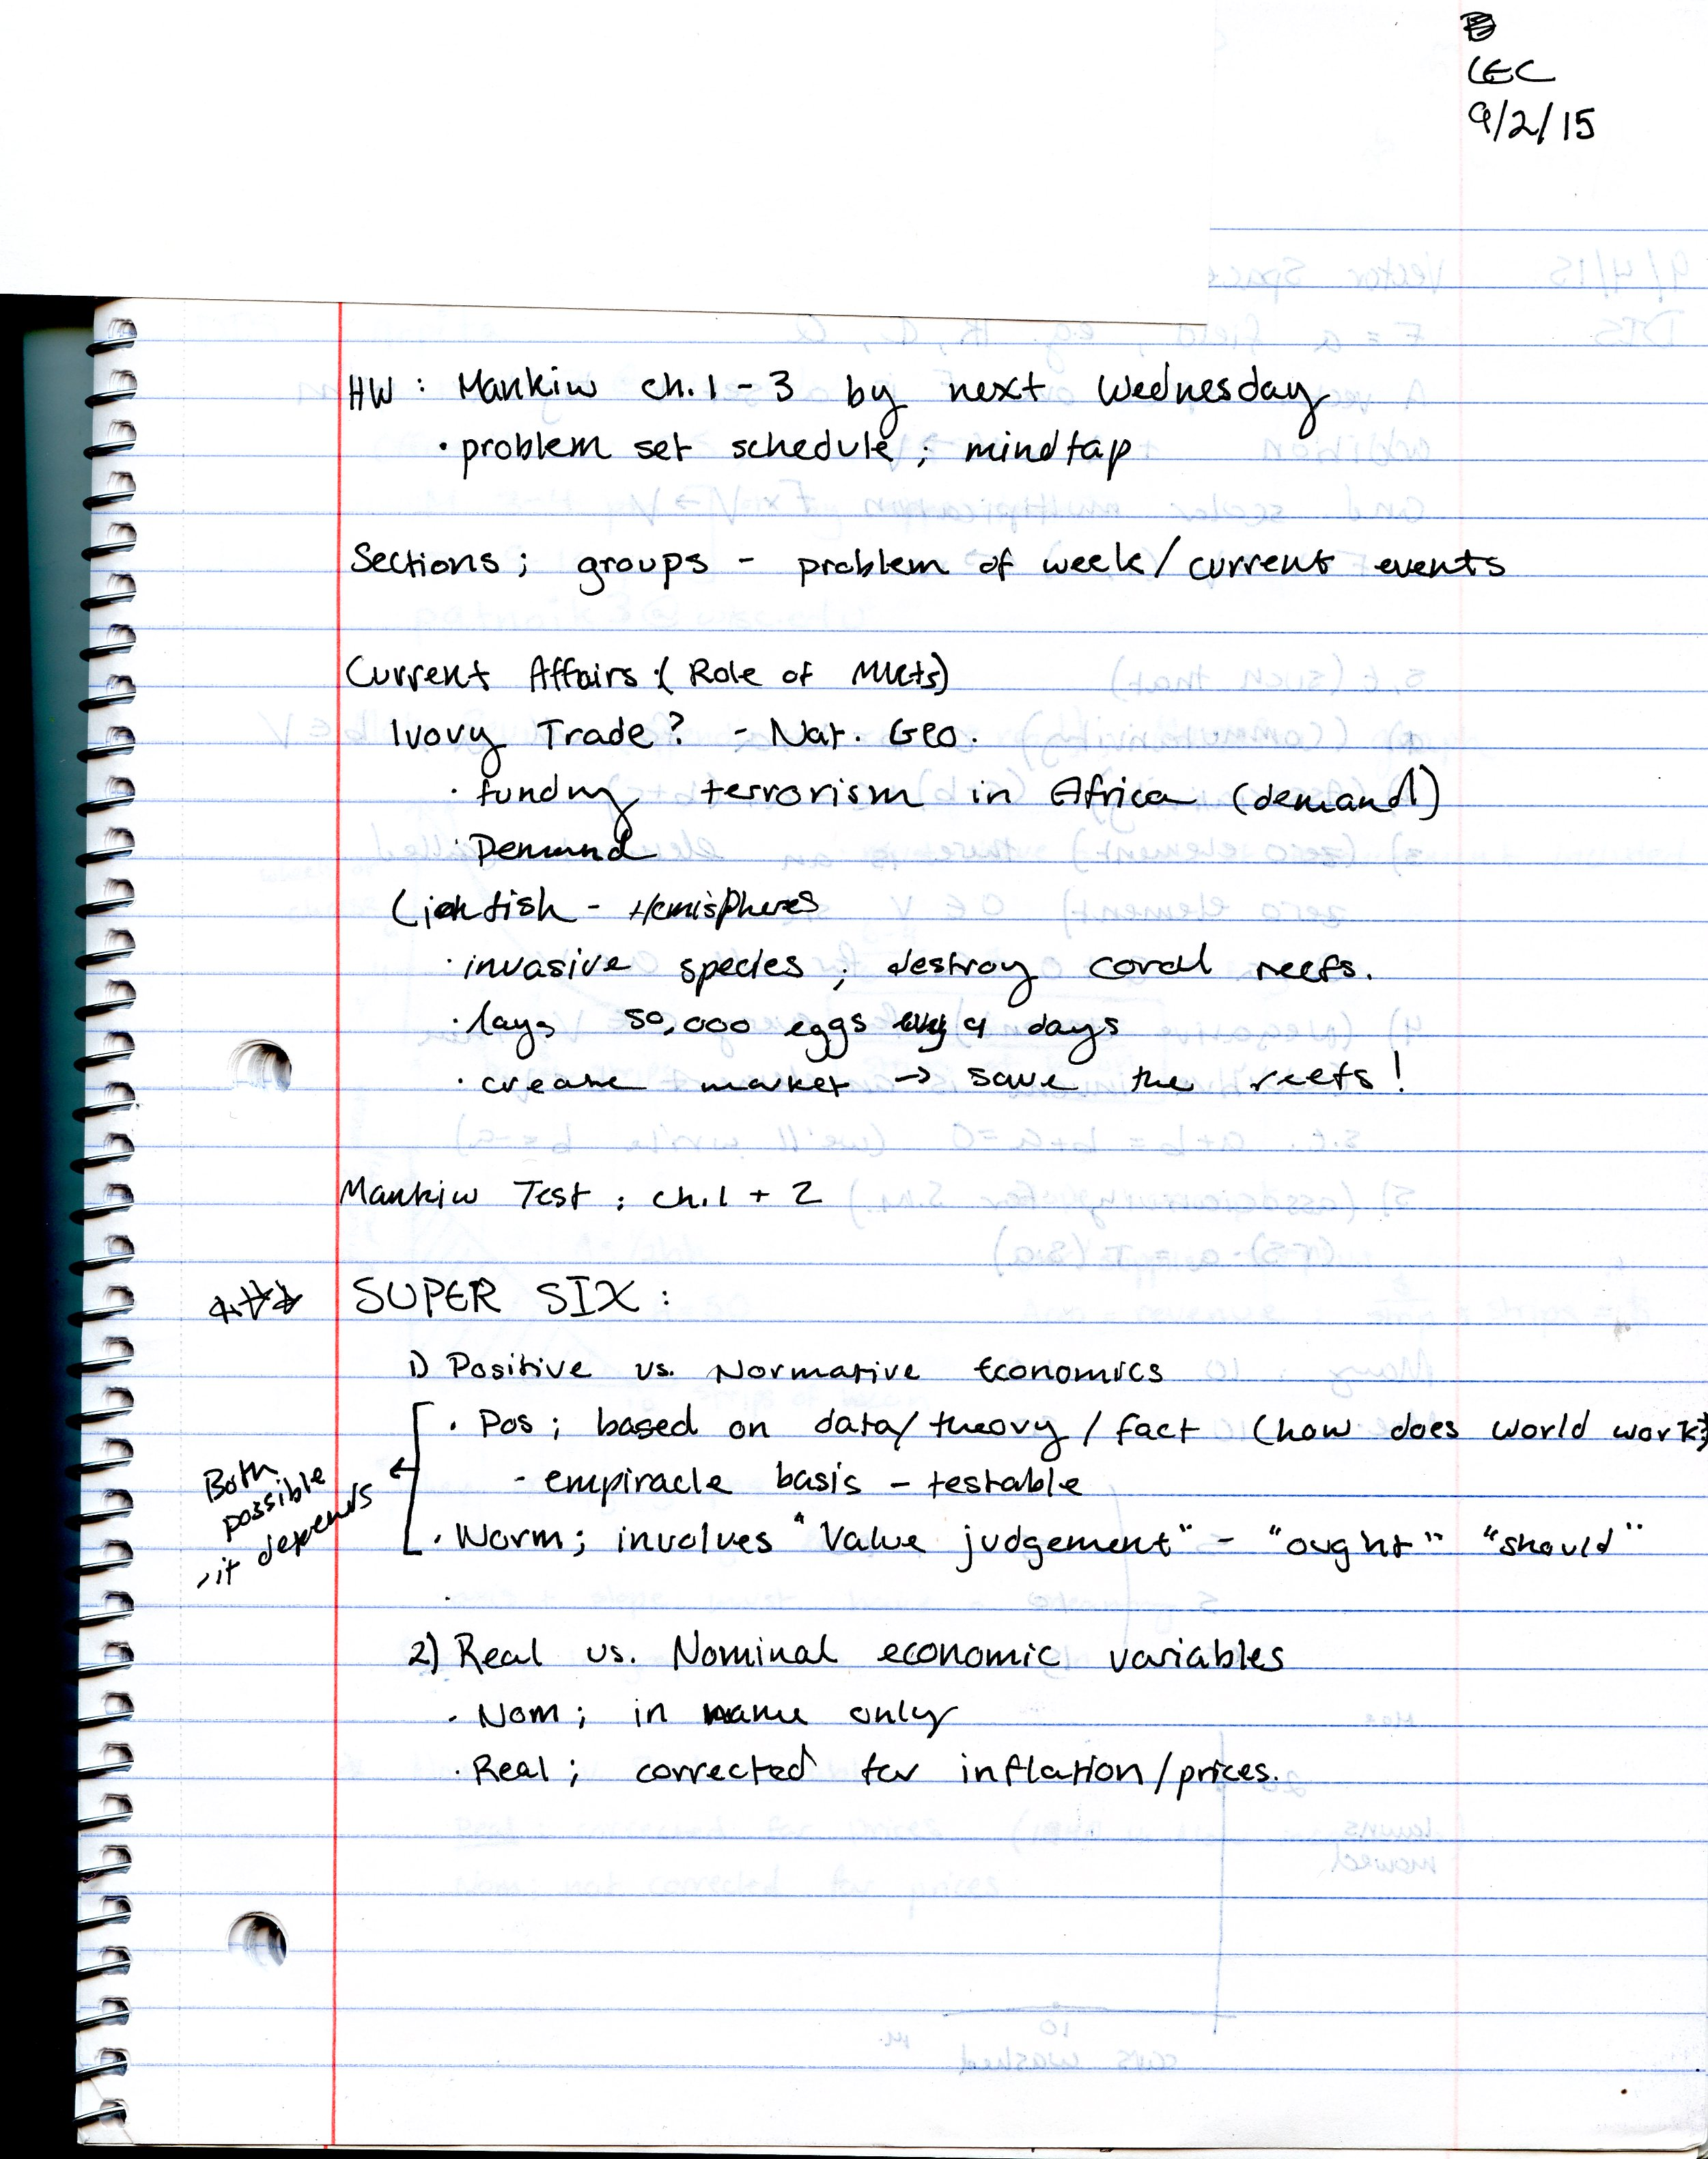 LEC
9/2/15
HW : Mankiw ch. 1 - 3 by next Wednesday
· problem set schedule ; mindtap
Sections ; groups - problem of week / current events
Current Affairs : ( Role of Mkts)
Ivory Trade? - Nat. Geo.
· funding terrorism in Africa (demand)
· Demand
Lionfish - Hemispheres
· invasive species ; destroy coral reefs.
· lays 50,000 eggs every 4 days
· create market → save the reefs!
Mankiw Test : ch. 1 + 2
SUPER SIX :
1) Positive vs. Normative Economics
· Pos ; based on data / theory / fact (how does world work)
- empiracle basis - testable
Both
possible
, it depends
· Norm ; involves "Value judgement" - "ought" "should"
2) Real vs. Nominal economic variables
· Nom ; in name only
· Real ; corrected for inflation / prices.